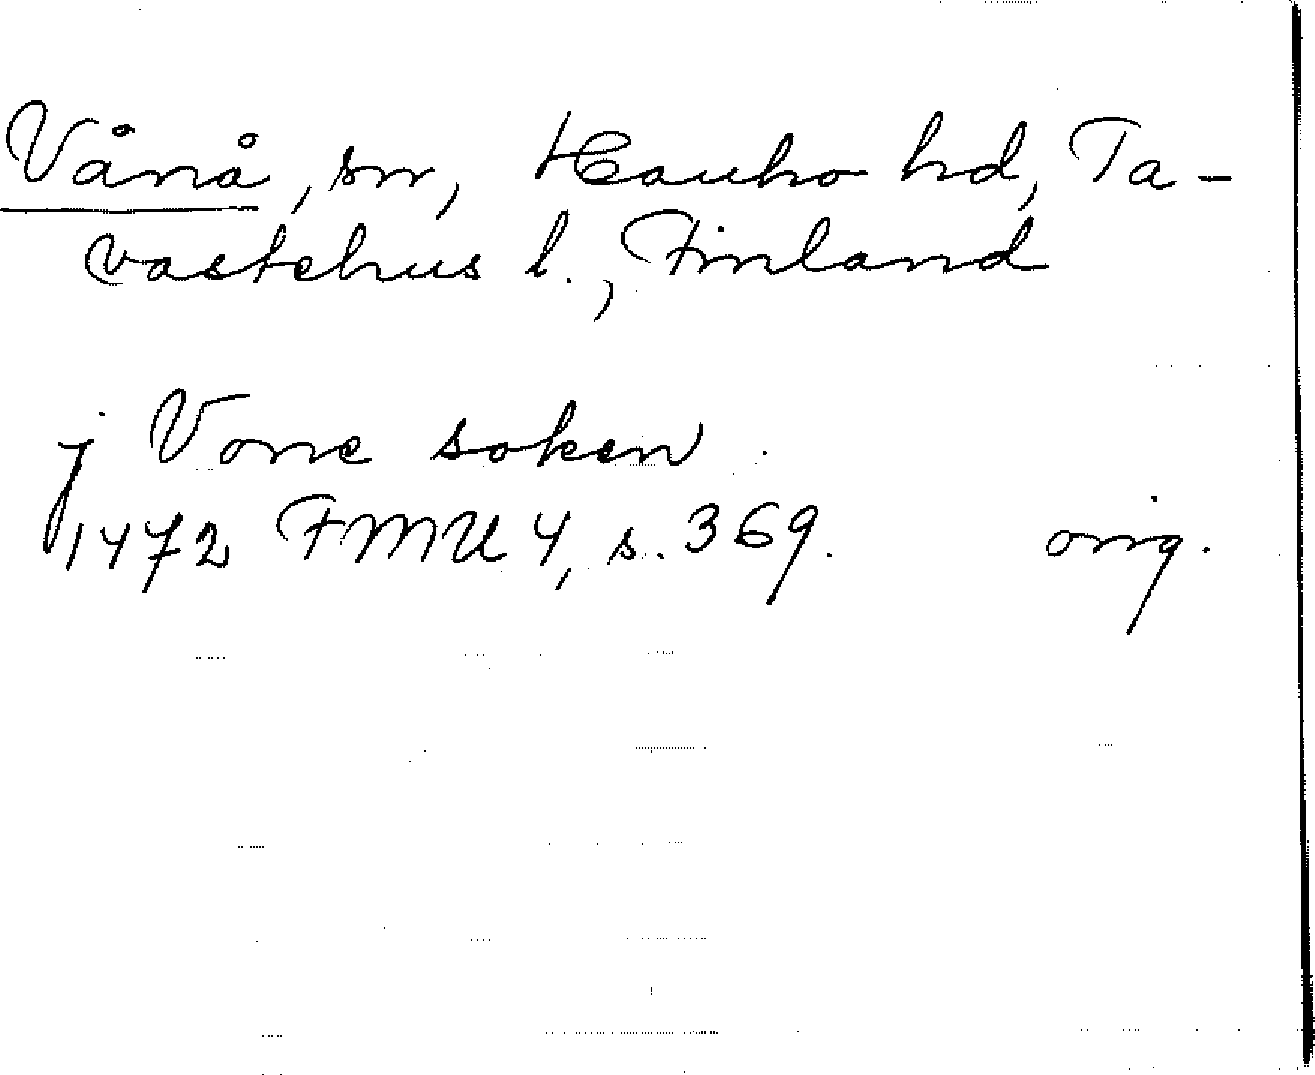 Vånå, sn, Hauho hd, Ta-
vastehus l., Finland
j Vone soken
1472 FMU 4, s. 369. orig.